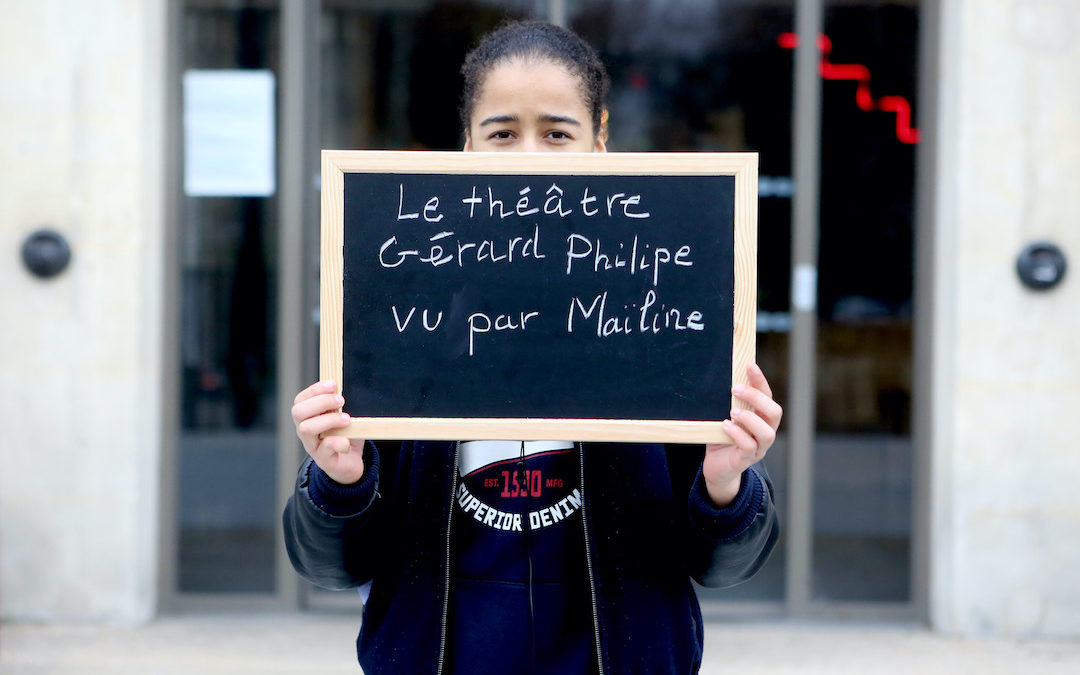 Le théâtre
Gérard Philipe
vu par Maïline
EST. 1530 MFG
SUPERIOR DENIM